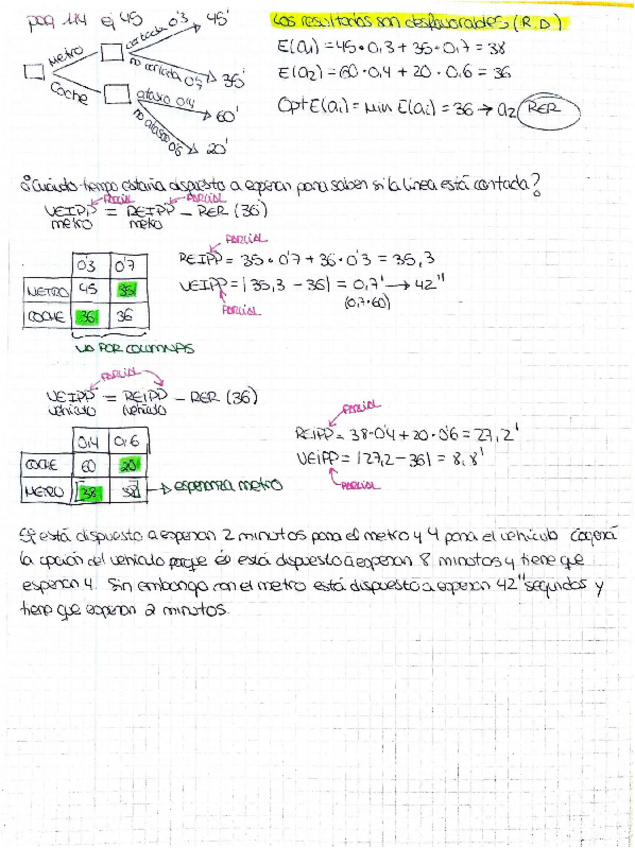 pag 114 ej 45
Los resultados son desfavorables (R.D)
Metro
cortada 0'3
45'
no cortada 0'7
35'
Coche
atasco 0'4
60'
no atasco 0'6
20'
E(a1) = 45·0,3 + 35·0,7 = 38
E(a2) = 60·0,4 + 20·0,6 = 36
Opt E(ai) = Min E(ai) = 36 → a2 RER
¿Cuánto tiempo estaría dispuesto a esperar para saber si la línea está cortada?
PARCIAL PARCIAL
VEIPP = REIPP - RER (36)
metro metro
0'3 0'7
METRO 45 35
COCHE 36 36
VA POR COLUMNAS
PARCIAL
REIPP = 35·0'7 + 36·0'3 = 35,3
VEIPP = |35,3 - 36| = 0,7' → 42''
(0,7·60)
PARCIAL
PARCIAL
VEIPP = REIPP - RER (36)
vehículo vehículo
0,4 0,6
COCHE 60 20
METRO 38 38 → esperanza metro
PARCIAL
REIPP = 38·0'4 + 20·0'6 = 27,2'
VEIPP = |27,2 - 36| = 8,8'
PARCIAL
Si está dispuesto a esperar 2 minutos para el metro y 4 para el vehículo cogerá
la opción del vehículo porque él está dispuesto a esperar 8 minutos y tiene que
esperar 4. Sin embargo con el metro está dispuesto a esperar 42'' segundos y
tiene que esperar 2 minutos.